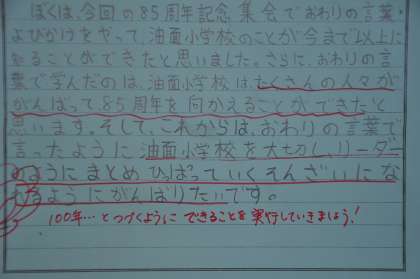 ぼくは、今回の85周年記念集会でおわりの言葉
よびかけをやって、油面小学校のことが今まで以上に
知ることができたと思いました。さらに、おわりの言
葉で学んだのは、油面小学校は、たくさんの人々が
がんばって、85周年を向かえることができたと
思います。そして、これからは、おわりの言葉で
言ったように油面小学校を大切し、リーダー
のようにまとめひっぱっていくそんざいにな
れるようにがんばりたいです。
100年…とつづくようにできることを実行していきましょう!